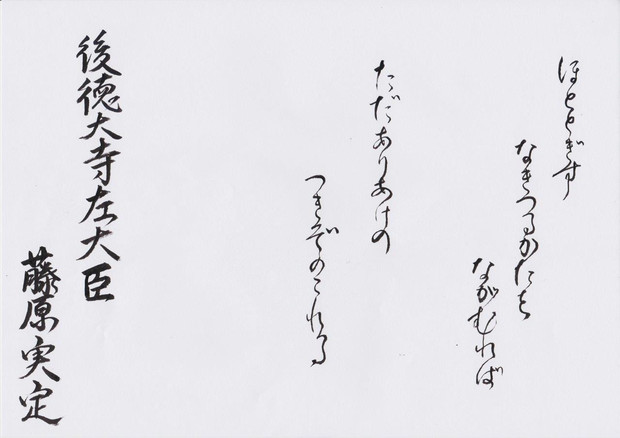 ほとゝぎす
なきつるかたを
ながむれば
たゞだありあけの
つきぞのこれる
後徳大寺左大臣
藤原実定